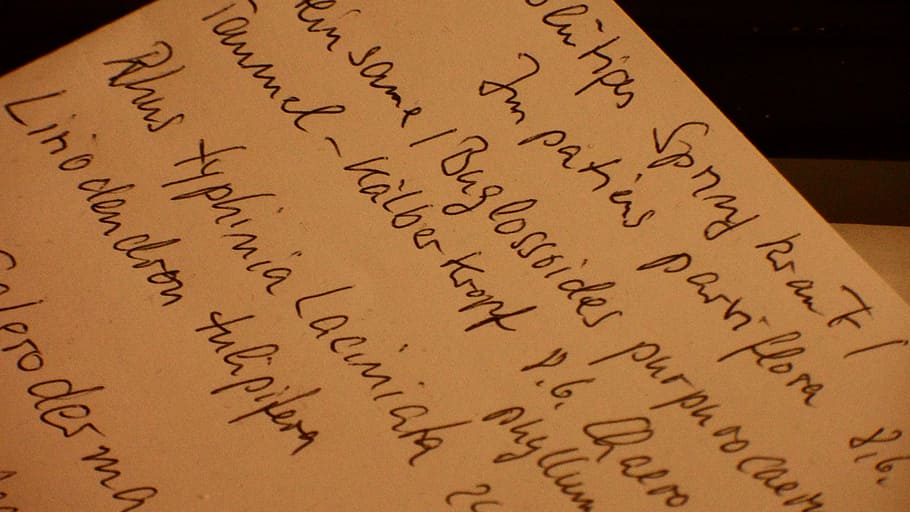 Springkraut /
Impatiens parviflora 8.6.
same / Buglossoides purpurocaeru
Taumel-Kälberkropf 8.6. Chaero
phyllum
Rhus typhinia Laciniata
Liriodendron tulipifera
leroderma